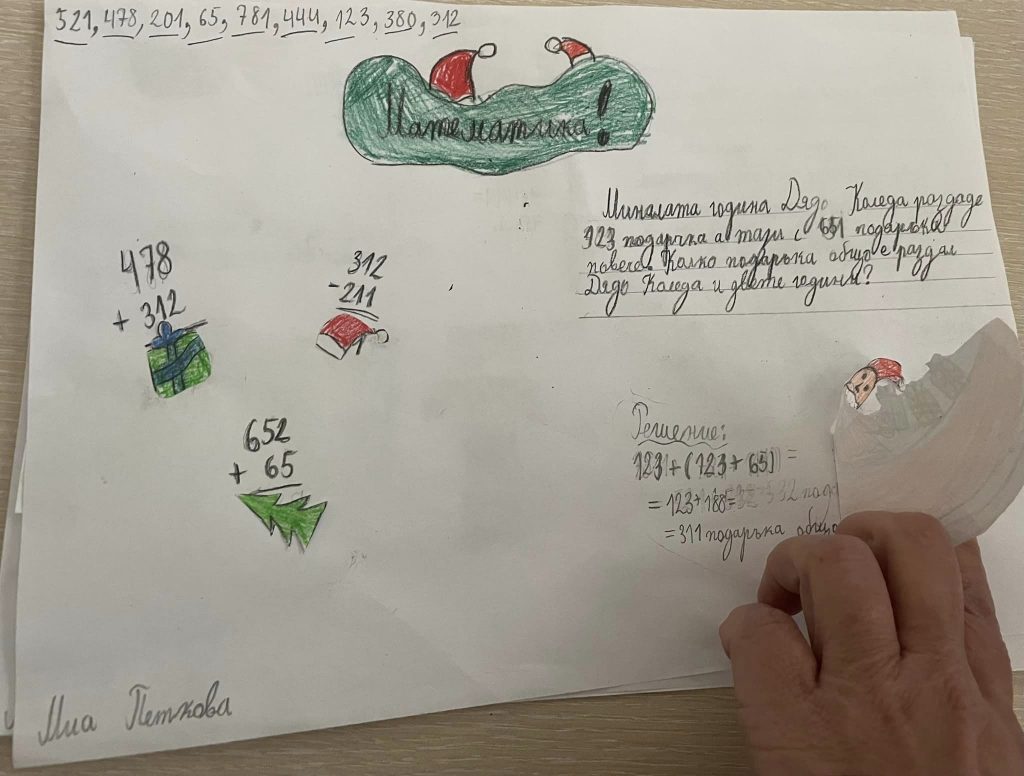 521, 478, 201, 65, 781, 444, 123, 380, 312
Математика!
Миналата година Дядо Коледа раздаде
123 подаръка а тази с 65 подаръка
повече. Колко подаръка общо е раздал
Дядо Коледа и двете години?
478
+ 312
312
- 211
1
652
+ 65
Решение:
123+(123+65) =
= 123+188=
=311 подаръка общо
Миа Петкова